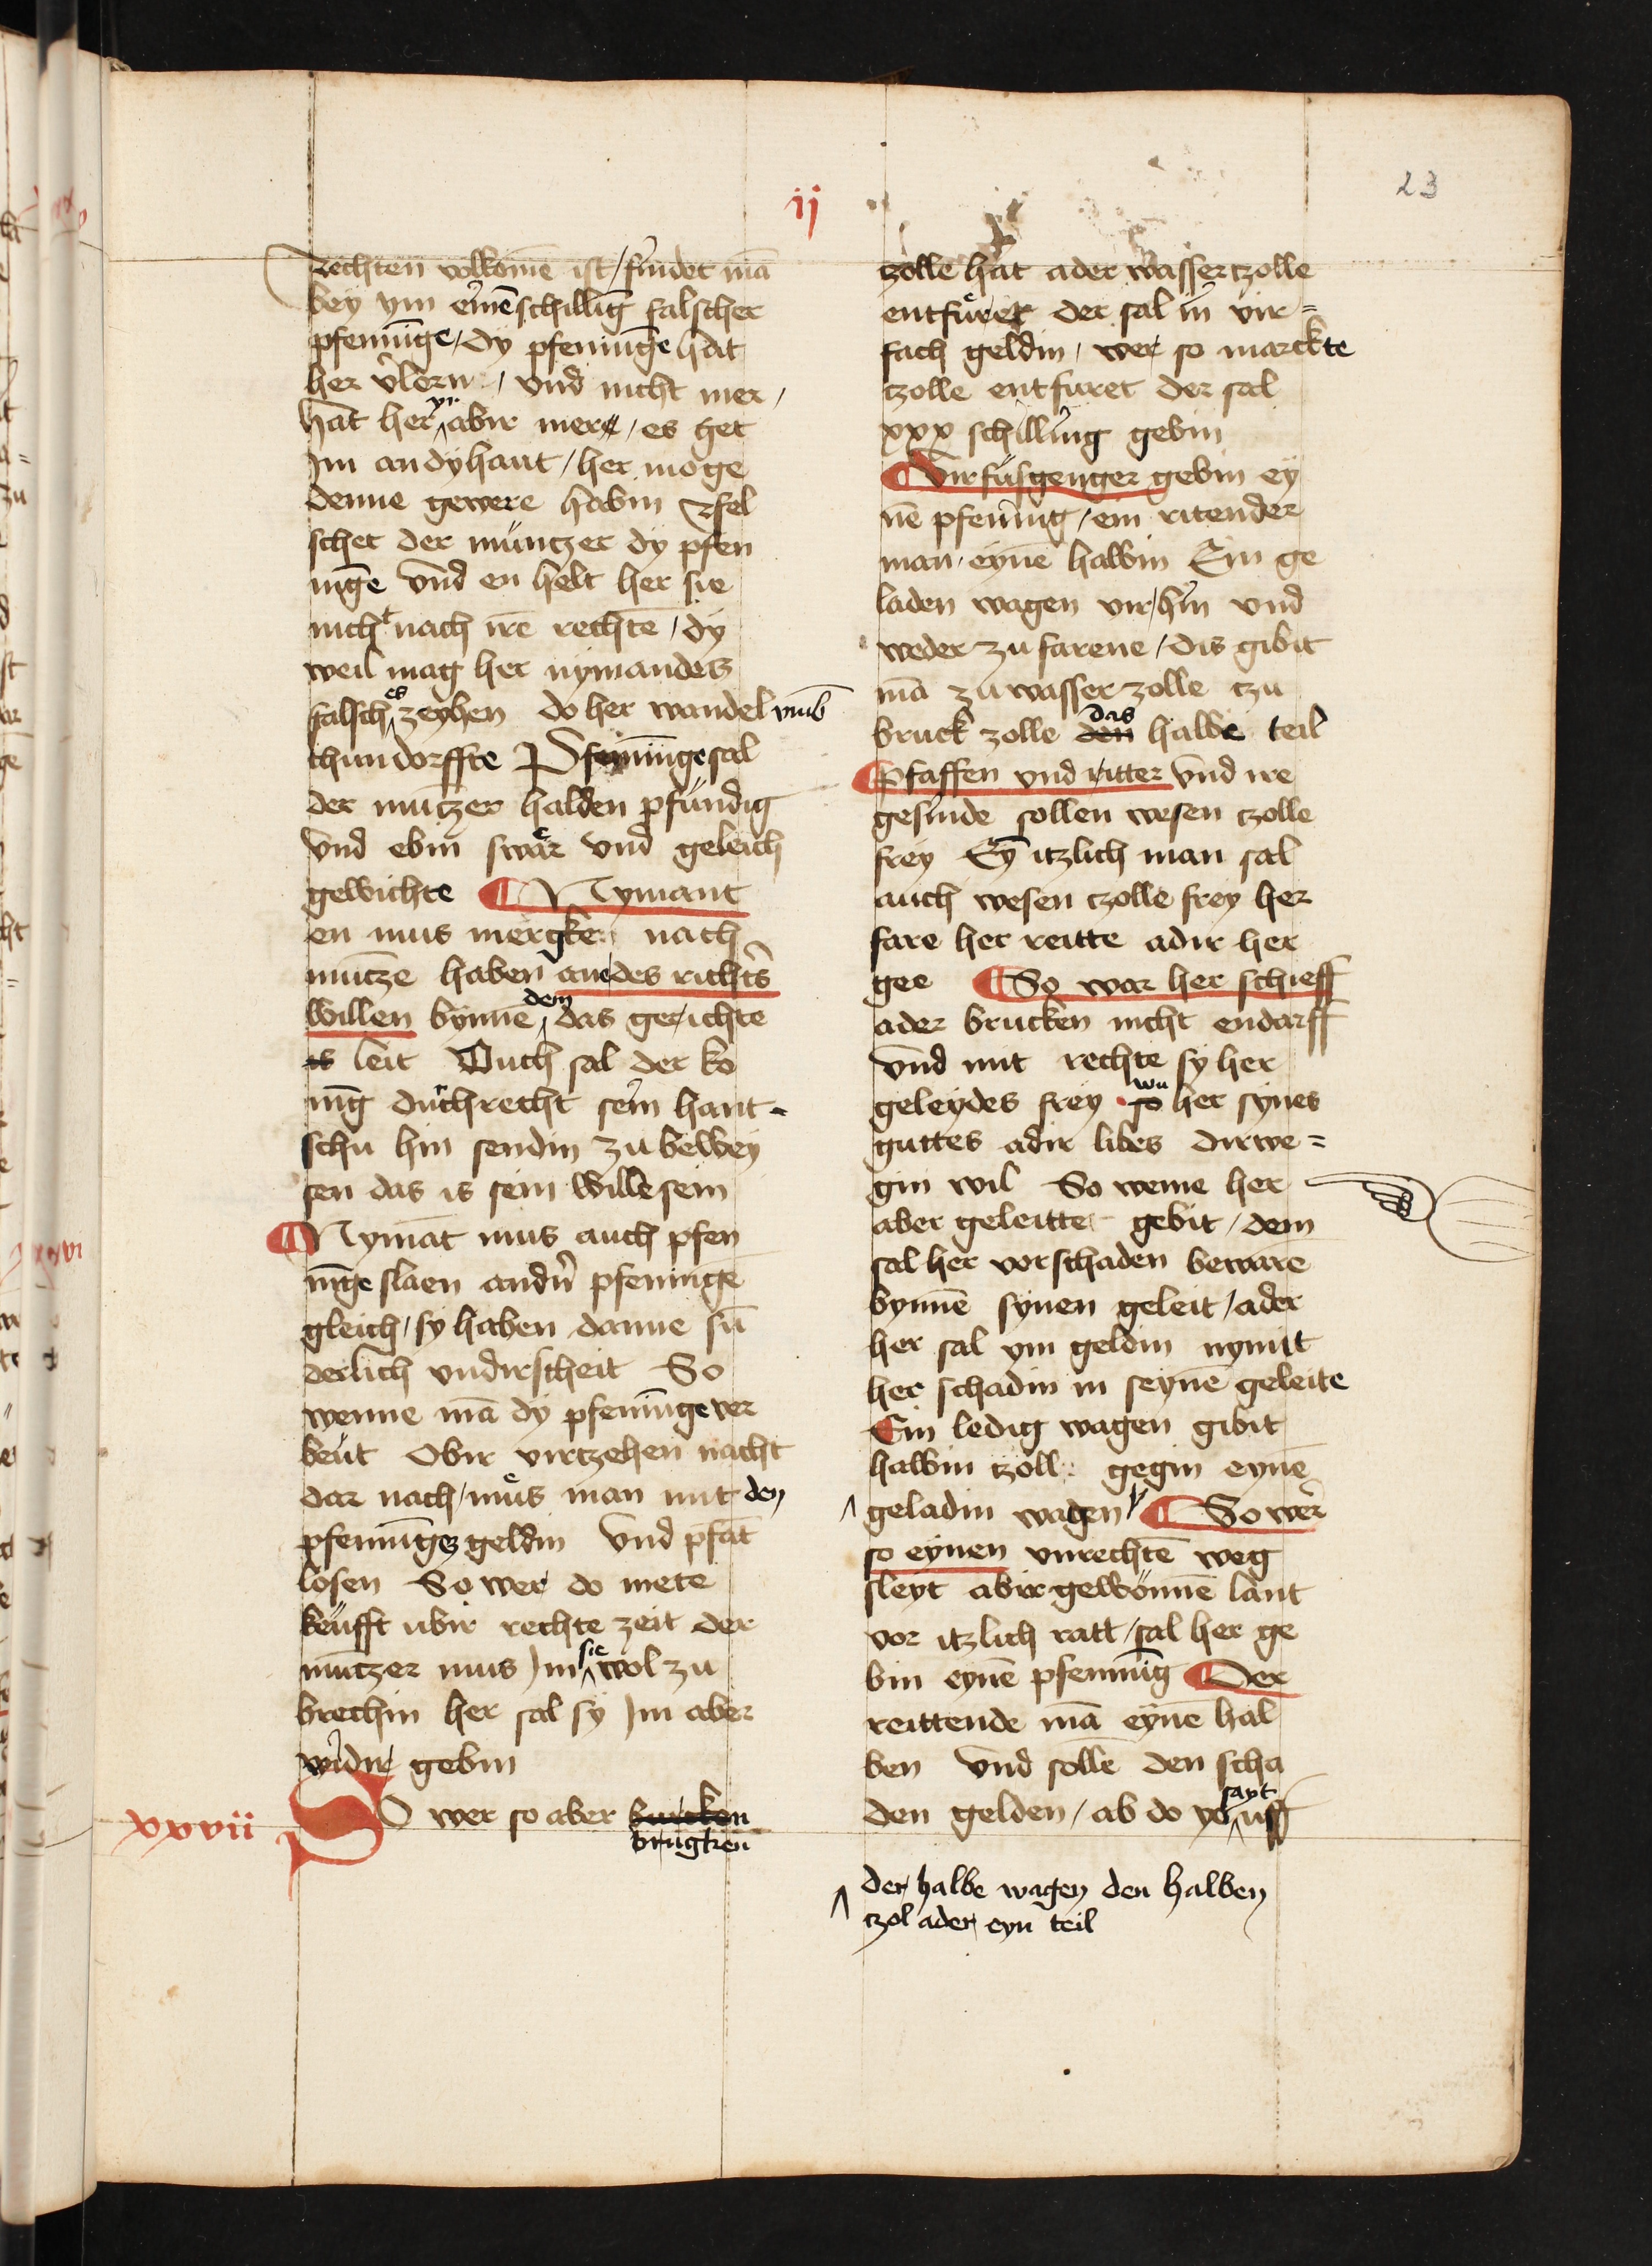 ij
23
rechten volkomē ist / findet mā
bey ym einē schilling falscher
pfenninge / dy pfenninge hat
her v̓lorn / vnd nicht mer /
hat her yr abir mer / es get
Im an dy hant / her moge
denne gewere habin
schet der müntzer dy pfen
nige vnd en helt her sie
nicht nach irē rechtē / dy
weil mag her nymandes
falsch es zeyhen do her wandel vmb
thun dorffte Pfenningesal
der mützer halden pfündig
vnd ebin swar vnd geleich
gewichte ¶ Nymant
en mus mergken nach
mütze haben ane des richt̓s
willen bynne dem das gerichte
is leit Ouch sal der ko
nig durch recht sein hant-
schu hin sendin zu bewey
sen das is sein wille sein
¶ Nymāt mus auch pfen
nige slaen andn̄ pfeninge
gleich / sy haben danne sū
derlich vndirscheit So
wenne mā dy pfenninge ver
beut Obir virtzehen nacht
dar nach / mus man mit den
pfenningē geldin vnd pfāt
losen So wer do mete
keufft ubir rechte zeit der
mutzer mus Im sie wol zu
brechin her sal sy Im aber
widir gebin
xxvii
SO wer so aber brucken
brugken
zolle hat ader wasser tzolle
entfüret der sal in vir=
fach geldin / wer so marckte
tzolle entfuret der sal
xxx schilling gebin
¶ Virfüsgenger gebin ey
nē pfennig / ein ritender
man eynē halbin Ein ge
laden wagen vir / hin vnd
weder zu farene / dis gibit
mā zu wasser zolle tzu
bruck zolle den das halbe teil
¶ Pfaffen vnd ritter vnd ire
gesinde sollen wesen tzolle
frey Ey itzlich man sal
auch wesen tzolle frey her
fare her reitte adir her
gee ¶ So war her schieff
ader brucken nicht endarff
vnd mit rechte sy her
geleydes frey so wu her synes
guttes adir libes dirwe=
gin wil So weme her
aber geleitte gebit / dem
sal her vor schaden beware
bynnē synen geleit / ader
her sal ym geldin nymit
her schadin in seynē geleite
Ein ledig wagen gibit
halbin tzoll gegin eynē
geladin wagen ¶ So wer̓
so eynen vnrechtē weg
sleyt abir gewonnē lant
vor itzlich ratt / sal her ge
bin eynē pfennig ¶ Der
reittende mā eynē hal
ben vnd solle den scha
den gelden / ab do yo sayt uff
der halbe wagen den halben
tzol ader eyn teil